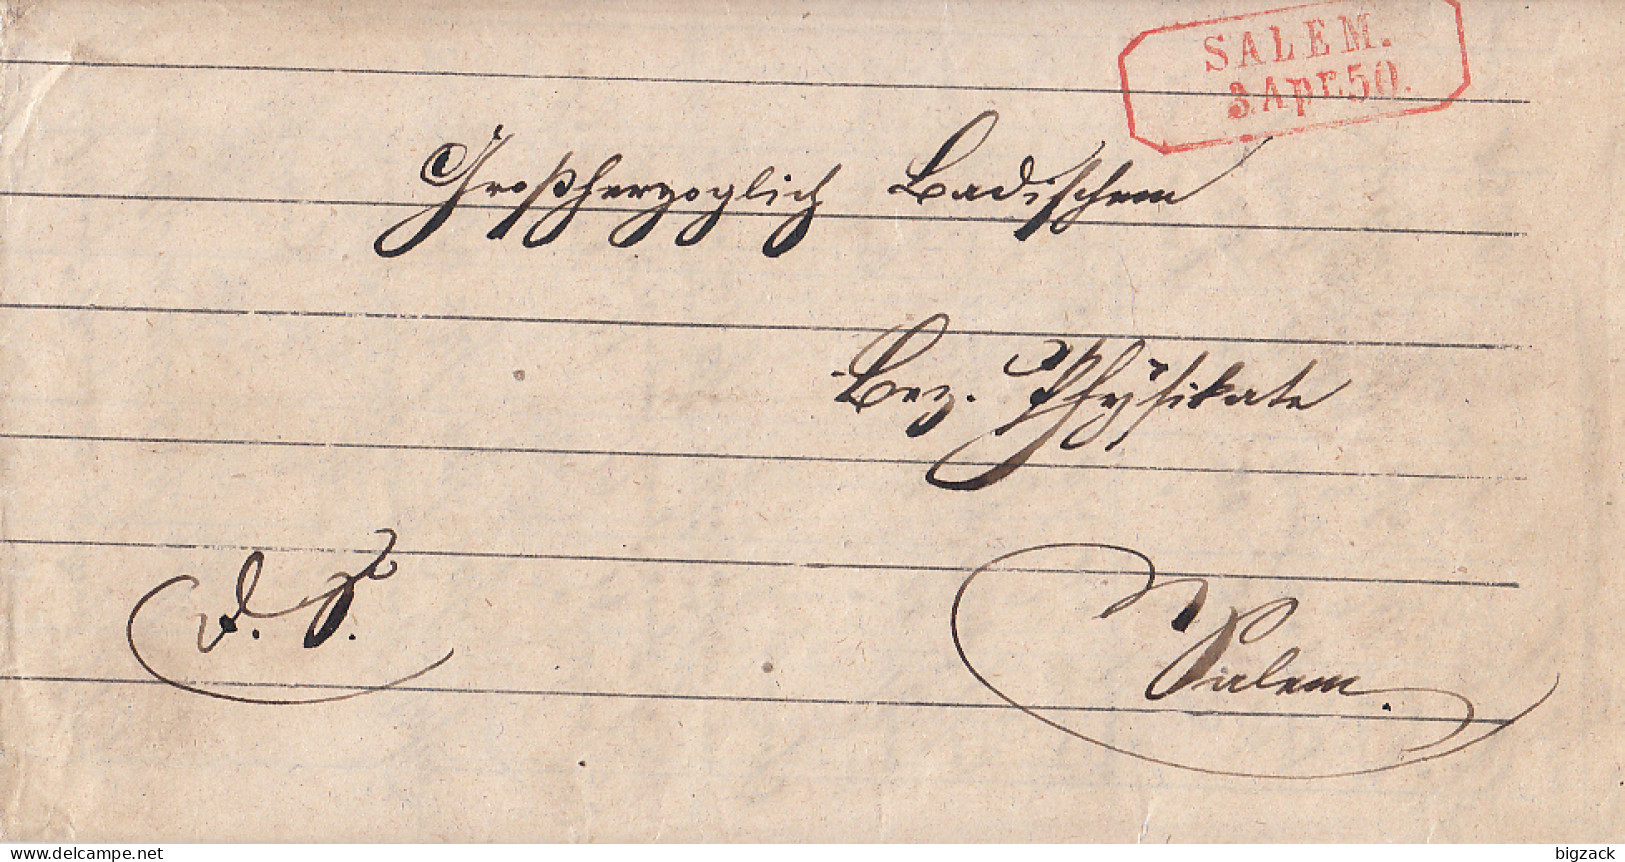 SALEM.
3. Apr. 50.
Großherzoglich Badischem
Bez. Physikate
d. J.
Salem.
delcampe.net
bigzack